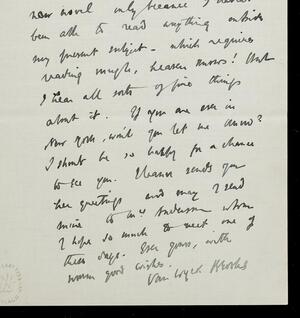 new novel only because I haven't
been able to read anything outside
my present subject - which requires
reading enough, heaven knows! But
I hear all sorts of fine things
about it. If you are ever in
New York, won't you let me know?
I should be so happy for a chance
to see you. Eleanor sends you
her greetings and may I send
mine to Mrs Anderson whom
I hope so much to meet one of
these days. Ever yours, with
warm good wishes.
Van Wyck Brooks